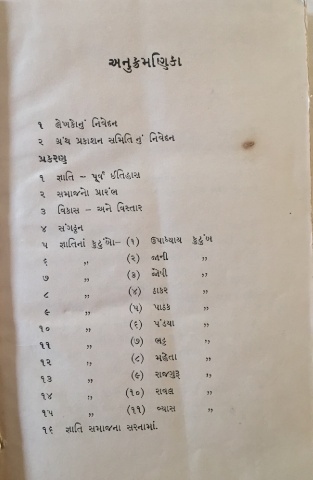 અનુક્રમણિકા
૧ લેખકોનું નિવેદન
૨ ગ્રંથ પ્રકાશન સમિતિ નું નિવેદન
પ્રકરણ
૧ જ્ઞાતિ – પૂર્વ ઈતિહાસ
૨ સમાજનો પ્રારંભ
૩ વિકાસ – અને વિસ્તાર
૪ સંગઠ્ઠન
૫ જ્ઞાતિનાં કુટુંબો– (૧) ઉપાધ્યાય કુટુંબ
૬ ,, (૨) જાની ,,
૭ ,, (૩) જોષી ,,
૮ ,, (૪) ઠાકર ,,
૯ ,, (૫) પાઠક ,,
૧૦ ,, (૬) પંડયા ,,
૧૧ ,, (૭) ભટ્ટ ,,
૧૨ ,, (૮) મહેતા ,,
૧૩ ,, (૯) રાજગુરૂ ,,
૧૪ ,, (૧૦) રાવલ ,,
૧૫ ,, (૧૧) વ્યાસ ,,
૧૬ જ્ઞાતિ સમાજના સરનામાં.